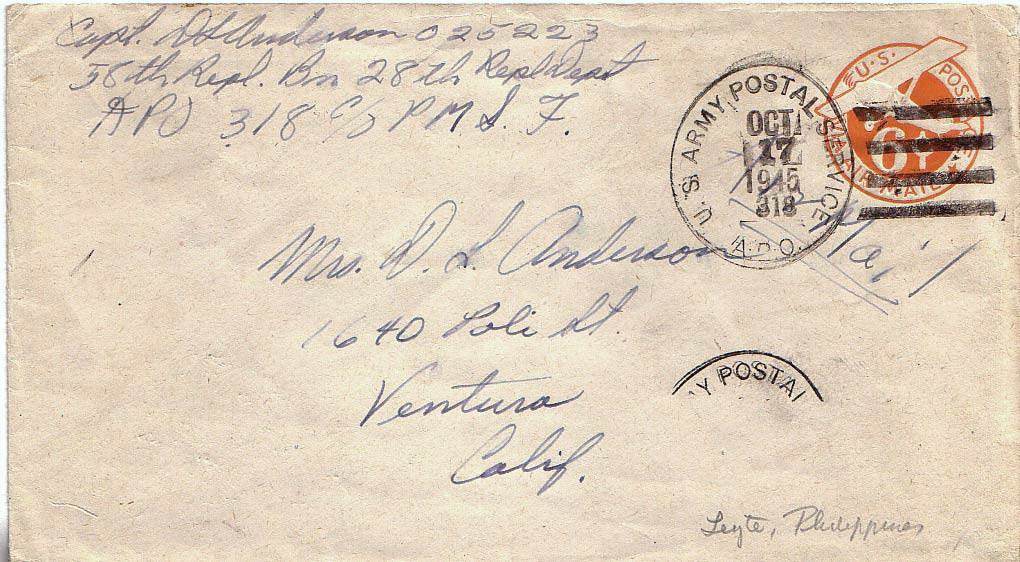 Capt. D L Anderson 025223
58th Repl. Bn 28th Repl Depot
APO 318 C/O P M S. F.
U.S. ARMY POSTAL SERVICE
OCT
17
1945
318
A.P.O.
U.S. POSTAGE
6¢
AIR MAIL
Air Mail
Mrs. D. L. Anderson
1640 Poli St.
Ventura
Calif.
Y POSTAL
Leyte, Philippines